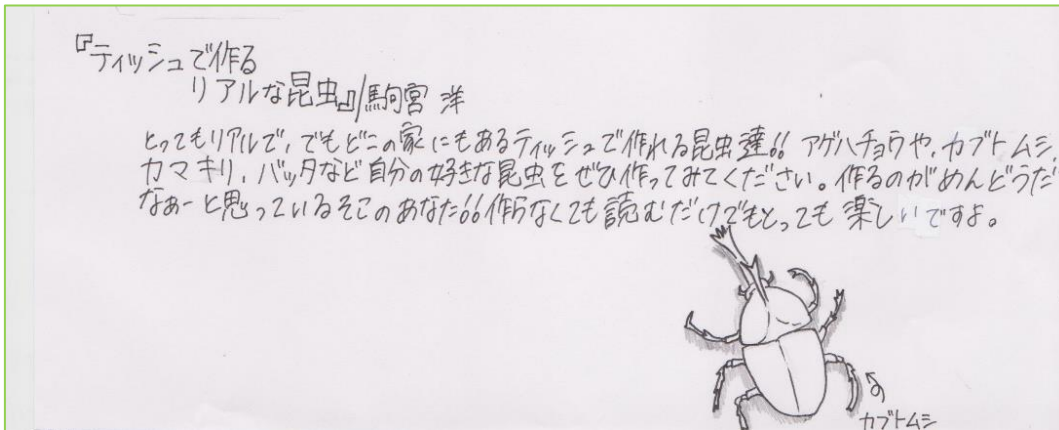 『ティッシュで作る
リアルな昆虫』/駒宮 洋
とってもリアルで、でもどこの家にもあるティッシュで作れる昆虫達!! アゲハチョウや、カブトムシ、
カマキリ、バッタなど自分の好きな昆虫をぜひ作ってみてください。作るのがめんどうだ
なぁーと思っているそこのあなた!!作らなくても読むだけでもとっても楽しいですよ。
カブトムシ